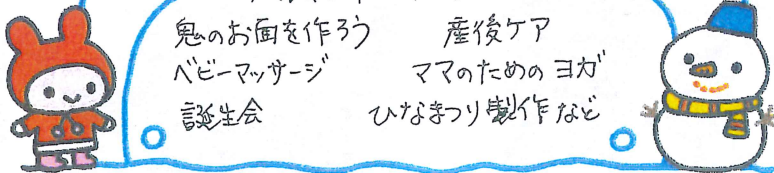 鬼のお面を作ろう 産後ケア
ベビーマッサージ ママのための ヨガ
誕生会 ひなまつり製作 など